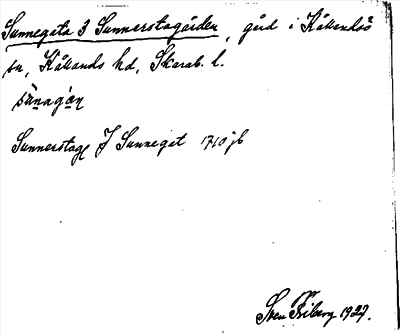 Sunnegata 3 Sunnerstagården, gård i Kållandsö
sn, Kållands hd, Skarab. l.
Sunnerstag J Sunnegat 1710 jb
Sven Friberg 1927.